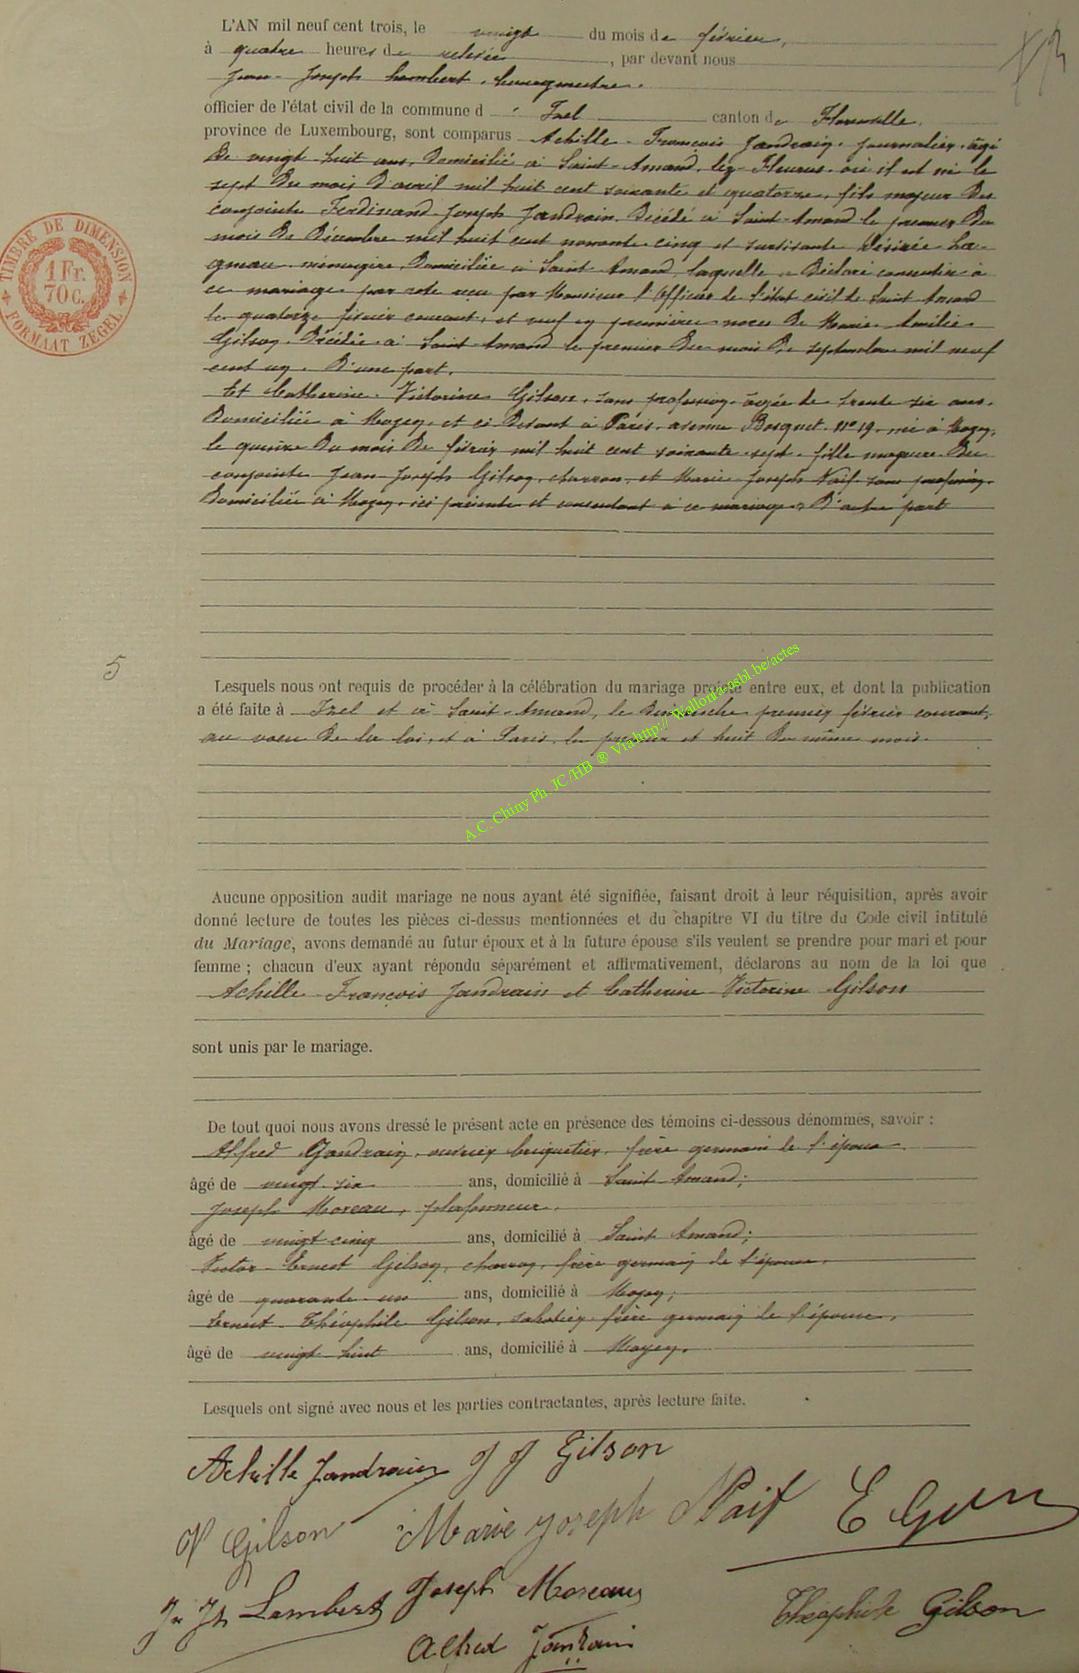 L'AN mil neuf cent trois, le vingt du mois de février,
à quatre heures de relevée, par devant nous
Jean-Joseph Lambert, bourgmestre.
officier de l'état civil de la commune d'Izel canton de Florenville
province de Luxembourg, sont comparus Achille-François Jandrain, journalier, âgé
de vingt-huit ans, domicilié à Saint-Amand-lez-Fleurus où il est né le
sept du mois d'avril mil huit cent soixante et quatorze, fils majeur des
conjoints Ferdinand-Joseph Jandrain, décédé à Saint-Amand le premier du
mois de décembre mil huit cent nonante-cinq et survivante Désirée
ménagère, domiciliée à Saint-Amand, laquelle a déclaré consentir à
ce mariage par acte reçu par Monsieur l'officier de l'état civil de Saint-Amand
le quatorze février courant, et veuf en premières noces de Marie-Amélie
Gilson, décédée à Saint-Amand le premier du mois de septembre mil neuf
cent un. D'une part.
Et Catherine-Victorine Gilson, sans profession, âgée de trente-six ans,
domiciliée à Moyen, et ci-devant à Paris, avenue Bosquet, n° 19, née à Moyen,
le quinze du mois de février mil huit cent soixante-sept, fille majeure des
conjoints Jean-Joseph Gilson, charron, et Marie-Joseph Naif sans profession,
domiciliés à Moyen, ici présents et consentant à ce mariage, d'autre part
5
Lesquels nous ont requis de procéder à la célébration du mariage projeté entre eux, et dont la publication
a été faite à Izel et à Saint-Amand, le dimanche premier février courant,
au voeu de la loi, et à Paris, les premier et huit du même mois.
A.C. Chiny Ph. JC/HB ® Via http:// Wallonia-asbl.be/actes
TIMBRE DE DIMENSION
1 Fr.
70 c.
FORMAAT ZEGEL
Aucune opposition audit mariage ne nous ayant été signifiée, faisant droit à leur réquisition, après avoir
donné lecture de toutes les pièces ci-dessus mentionnées et du chapitre VI du titre du Code civil intitulé
du Mariage, avons demandé au futur époux et à la future épouse s'ils veulent se prendre pour mari et pour
femme ; chacun d'eux ayant répondu séparément et affirmativement, déclarons au nom de la loi que
Achille-François Jandrain et Catherine-Victorine Gilson
sont unis par le mariage.
De tout quoi nous avons dressé le présent acte en présence des témoins ci-dessous dénommés, savoir :
Alfred Jandrain, ouvrier briquetier, frère germain de l'époux
âgé de vingt-six ans, domicilié à Saint-Amand ;
Joseph Moreau, plafonneur,
âgé de vingt-cinq ans, domicilié à Saint-Amand ;
Victor-Ernest Gilson, charron, frère germain de l'épouse,
âgé de quarante-un ans, domicilié à Moyen ;
Ernest-Théophile Gilson, sabotier, frère germain de l'épouse,
âgé de vingt-huit ans, domicilié à Moyen.
Lesquels ont signé avec nous et les parties contractantes, après lecture faite.
Achille Jandrain J J Gilson
V Gilson Marie Joseph Naif E Gilson
Jn Jh Lambert Joseph Moreau Théophile Gilson
Alfred Jandrain